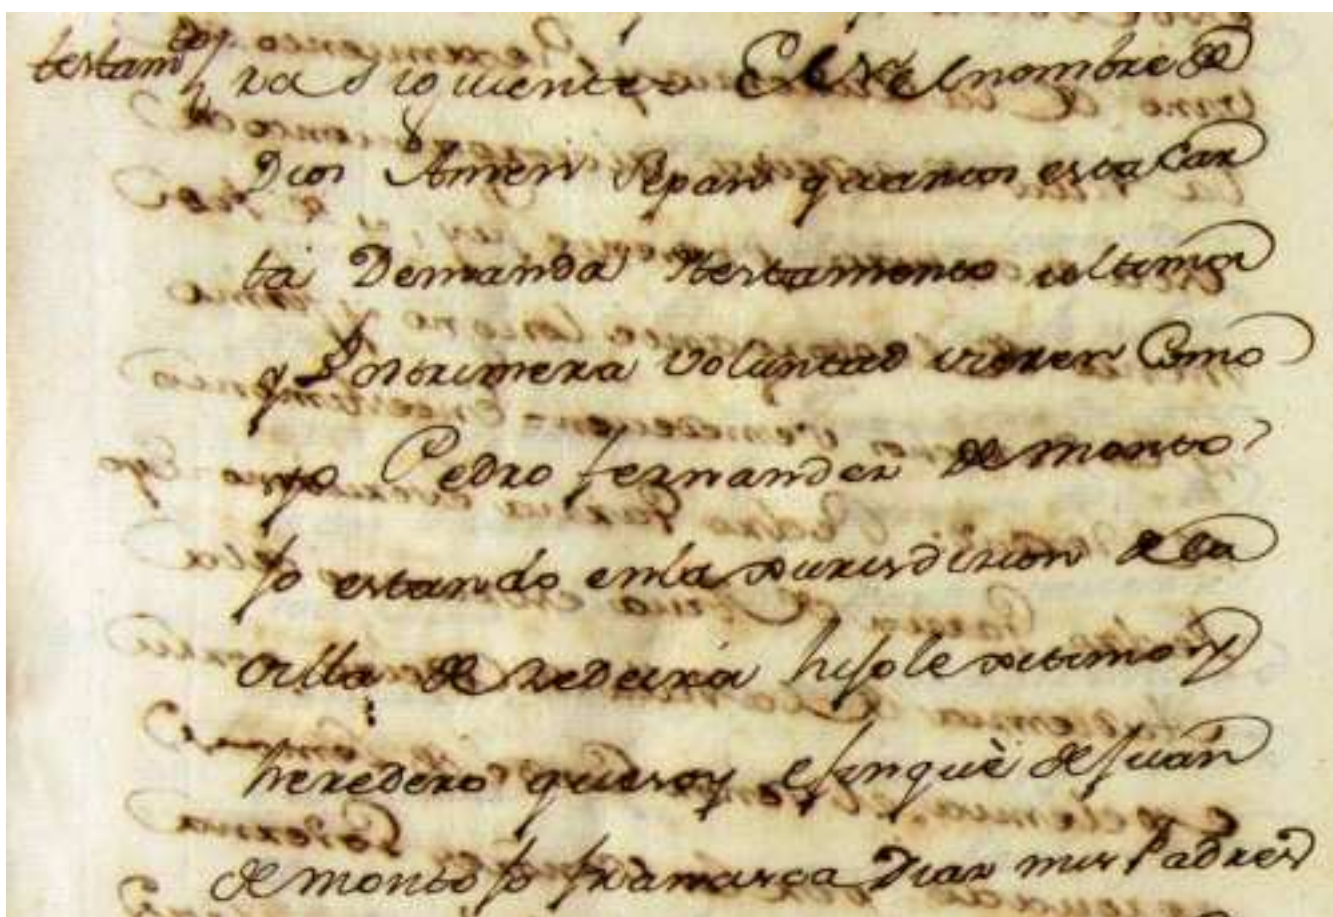 testam.to
ra siguiente El nombre de
Dios Amen Sepan quantos esta Car
ta Demanda testamento ultima
y Postrimera Voluntad vieren Como
yo Pedro fernandez de monto
jo estando en la xurisdicion de la
villa de hijo lexitimo y
heredero que soy e finquè de Juan
de montojo Diaz mis Padres